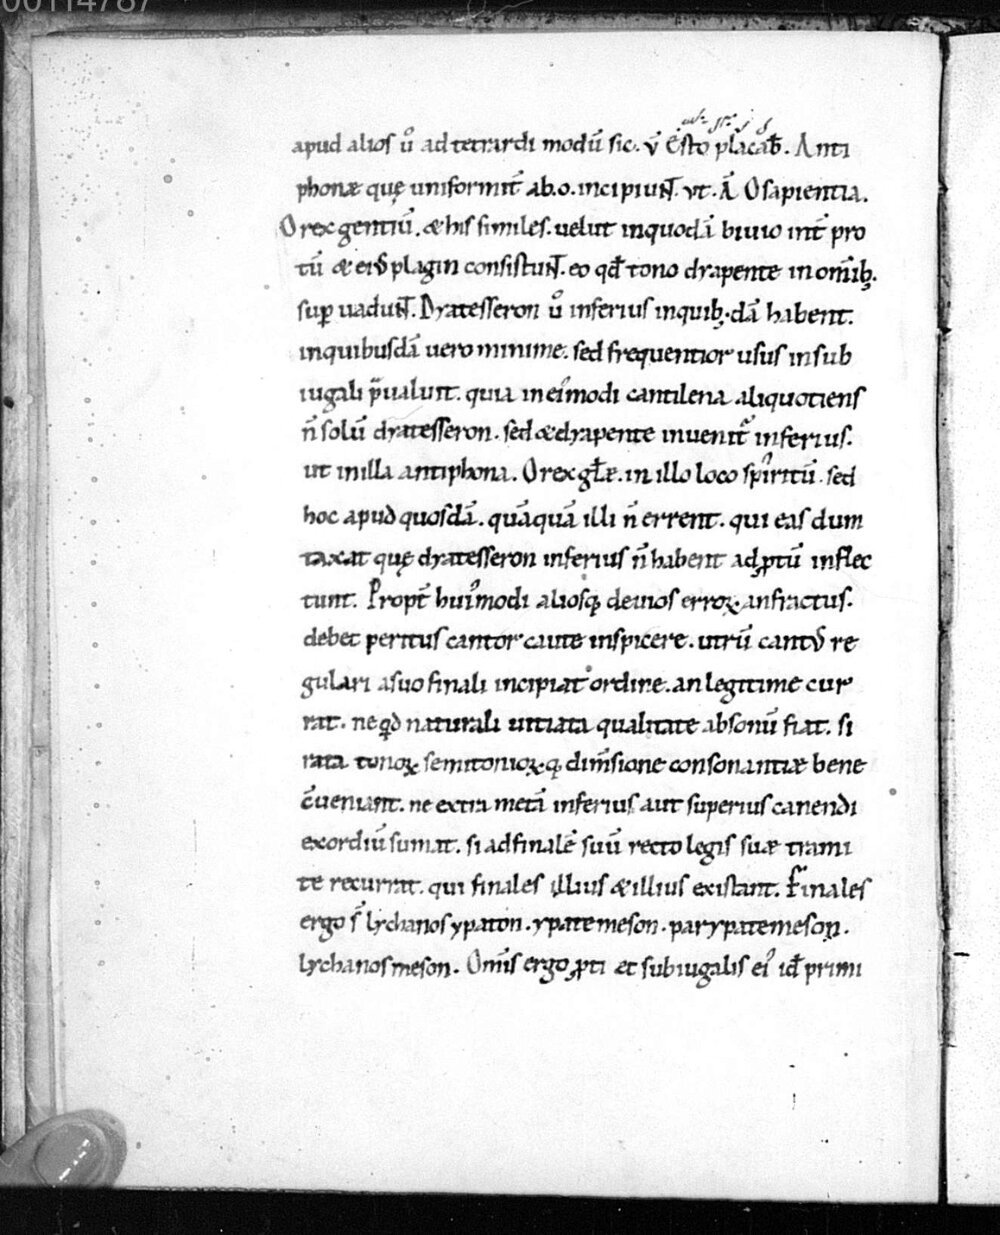 00114787
apud alios ů ad tetrardi modū sic. v̄ Esto placab̄. Anti
phonæ quę uniformit̄ ab .o. incipiunt̄. vt. A̅ O sapientia.
O rex gentiū. & his similes. uelut in quodā biuio int̄ pro
tū & eiꝰ plagin consistunt̄. eo qđ tono dyapente in om̄ibꝫ.
suꝑ uadunt̄. Dyatesseron ů inferius in quibꝫ. dā habent.
in quibusdā uero minime. sed frequentior usus in sub
iugali p̄ualuit. quia in ei᾽modi cantilena aliquotiens
n̄ solū dyatesseron. sed & dyapente inuenit᷑ inferius.
ut in illa antiphona. O rex gł̄æ. in illo loco sp̄iritū. sed
hoc apud quosdā. quāquā illi n̄ errent. qui eas dum
taxat quę dyatesseron inferius n̄ habent ad ꝓtū inflec
tunt. Propt̄ hui᾽modi aliosqꝫ deuios erroꝝ anfractus.
debet peritus cantor caute inspicere. utrū cantꝰ re
gulari a suo finali incipiat ordine. an legitime cur
rat. ne qd̓ naturali uitiata qualitate absonū fiat. si
rata tonoꝝ semitonioꝝqꝫ dim̄sione consonantiæ bene
c̄ueniant. ne extra metā inferius aut superius canendi
exordiū sumat. si ad finalē suū recto legis suæ trami
te recurrat. qui finales illius & illius existant. Finales
ergo s̄ lychanos ypaton. ypate meson. parypate meson.
lychanos meson. Om̄is ergo ꝓti et subiugalis ei᾽ id̄ primi